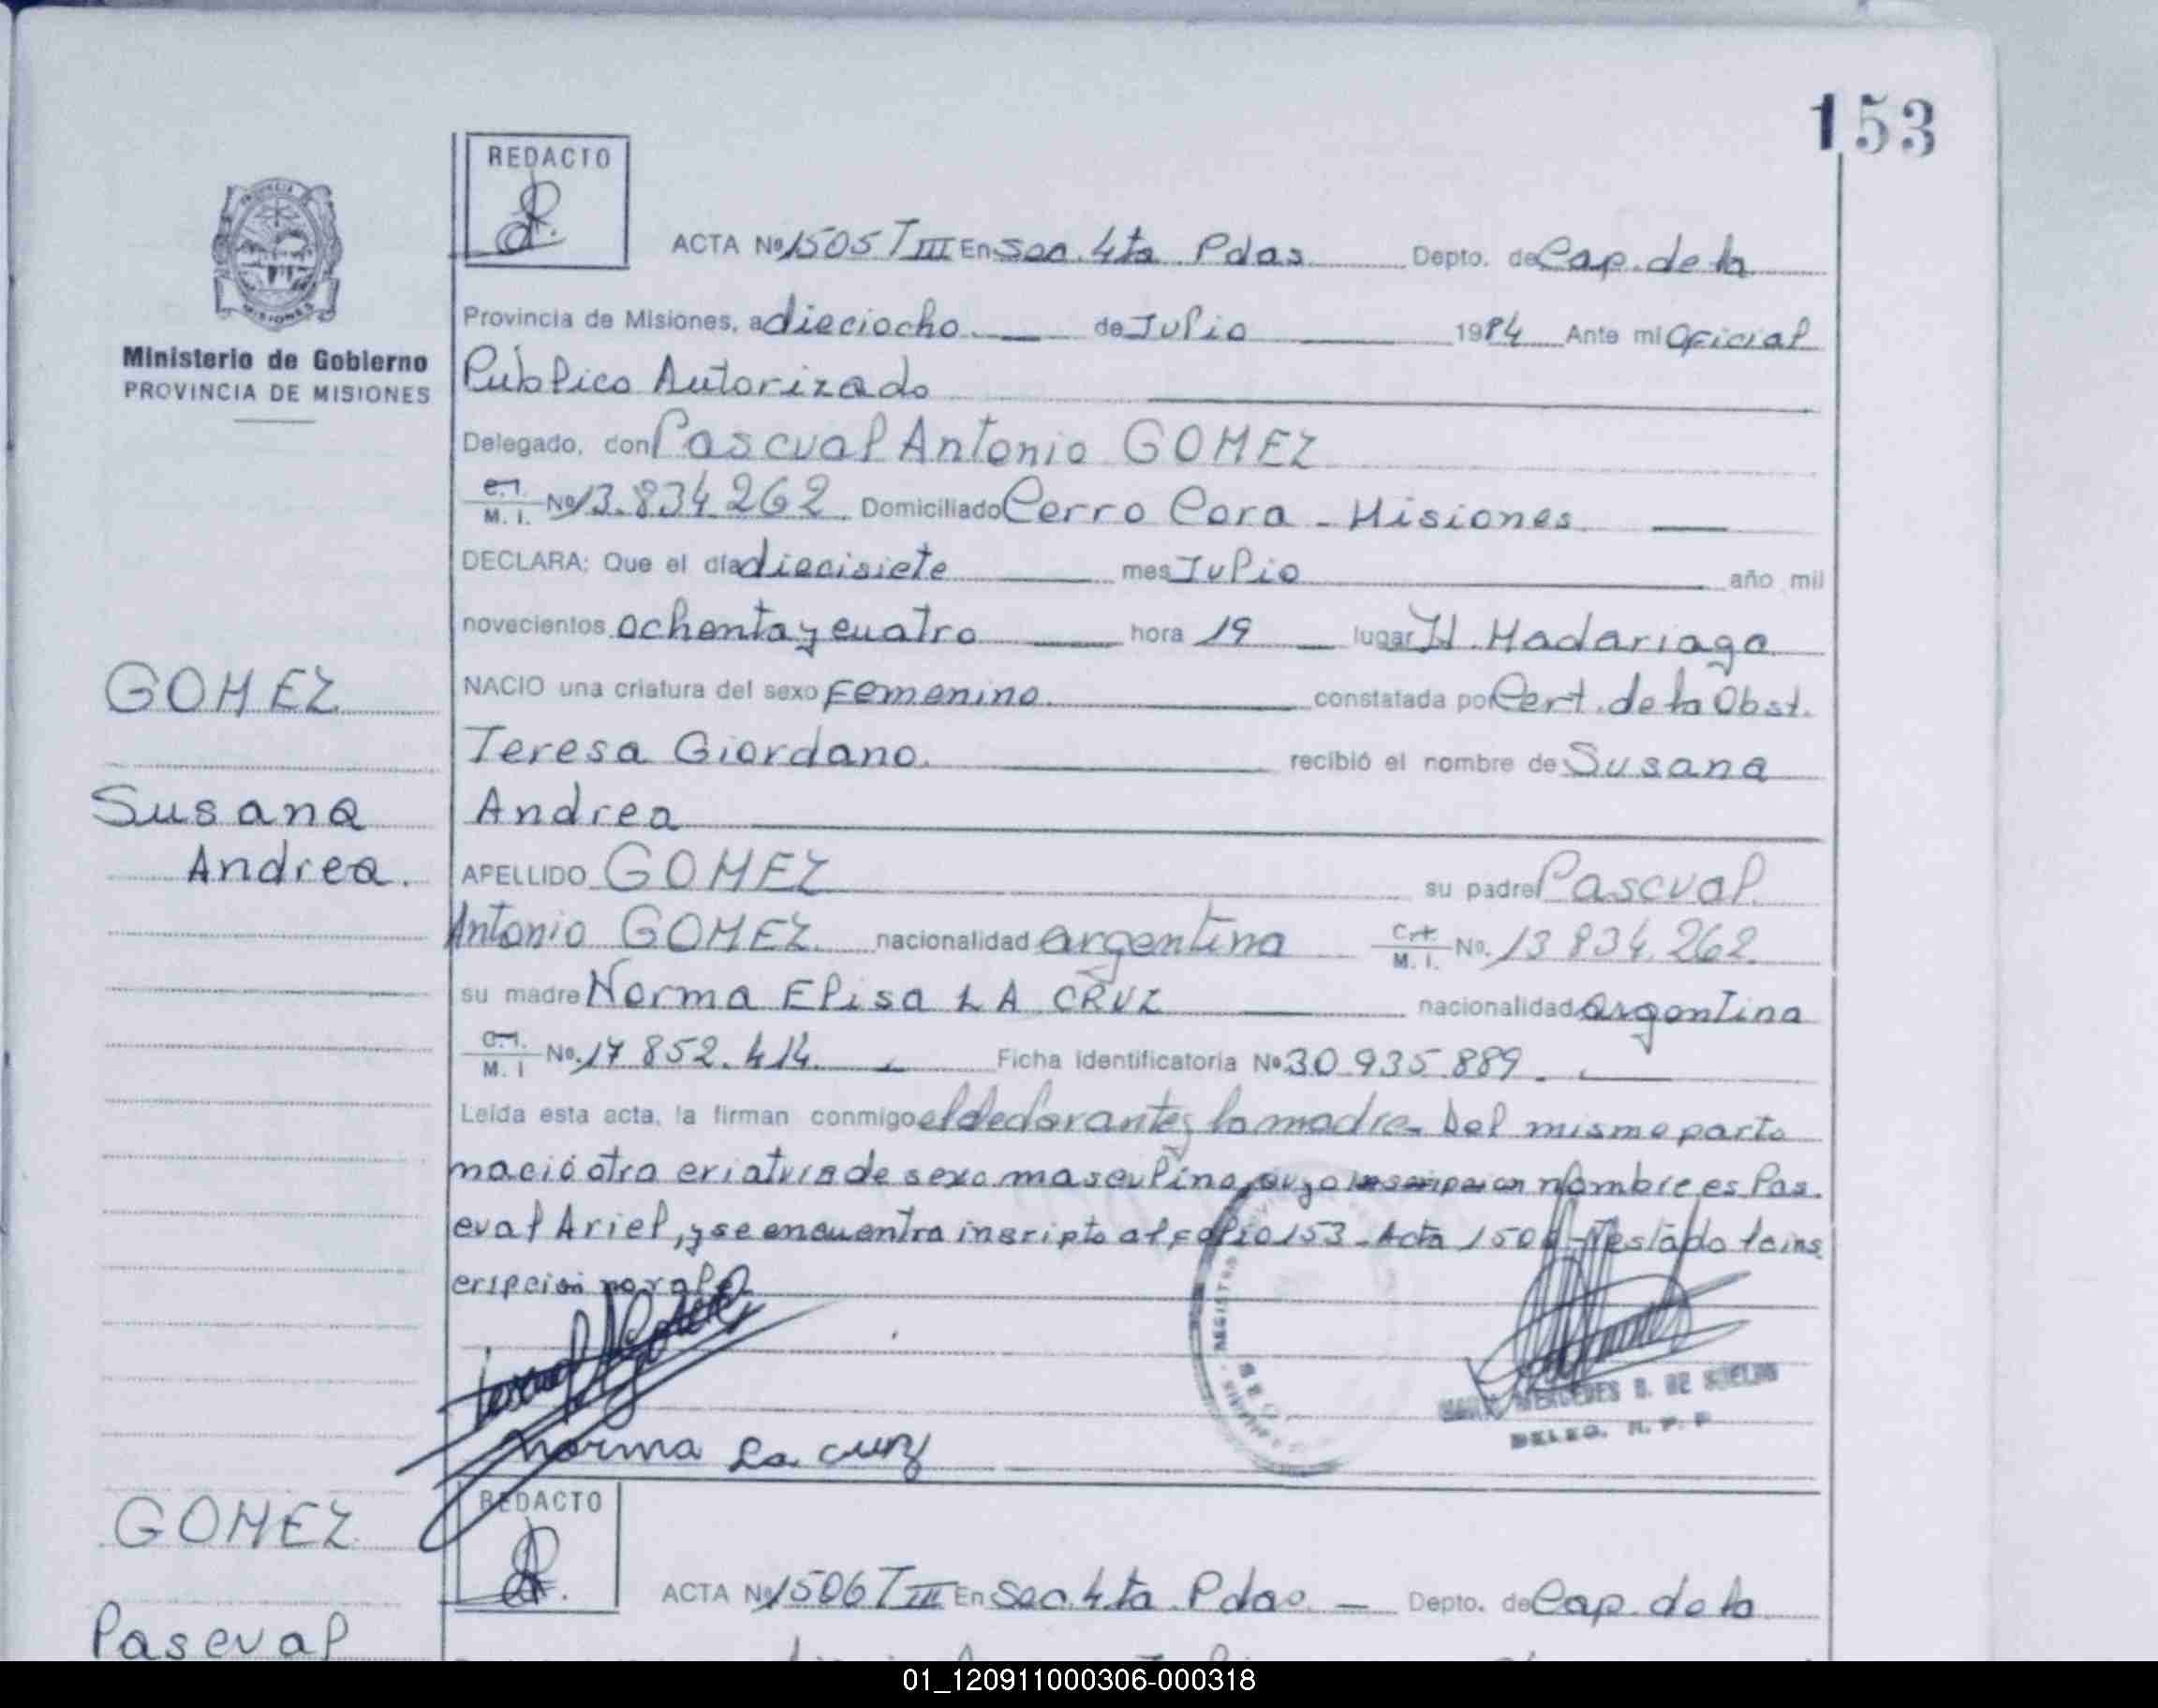 153
REDACTO
ACTA Nº 1505 T III En Sec. 4ta Pdas Depto. de Cap. de la
Provincia de Misiones, a dieciocho de Julio 1984 Ante mi Oficial
Ministerio de Gobierno
PROVINCIA DE MISIONES
Público Autorizado
Delegado, don Pascual Antonio GOMEZ
C.I. M. I. Nº 13.834.262 Domiciliado Cerro Cora - Misiones
DECLARA: Que el día diecisiete mes Julio año mil
novecientos ochenta y cuatro hora 19 lugar H. Madariaga
GOMEZ
NACIO una criatura del sexo Femenino. constatada por Cert. de la Obst.
Teresa Giordano. recibió el nombre de Susana
Susana
Andrea
Andrea.
APELLIDO GOMEZ su padre Pascual
Antonio GOMEZ nacionalidad argentina C.I. M. I. No. 13.834.262
su madre Norma Elisa LA CRUZ nacionalidad argentina
C.I. M. I No. 17.852.414 Ficha Identificatoria Nº 30.935.889
Leída esta acta, la firman conmigo el declarante y la madre. Del mismo parto
nació otra criatura de sexo masculino, cuyo inscripcion nombre es Pas
cual Ariel, y se encuentra inscripto al folio 153 - Acta 1506 - Testado la ins
cripción no vale
Norma La Cruz
DE SUELDO
DELEG. R. P. P
GOMEZ
REDACTO
ACTA Nº 1506 T III En Sec. 4ta Pdas. Depto. de Cap. de la
Pascual
01_120911000306-000318